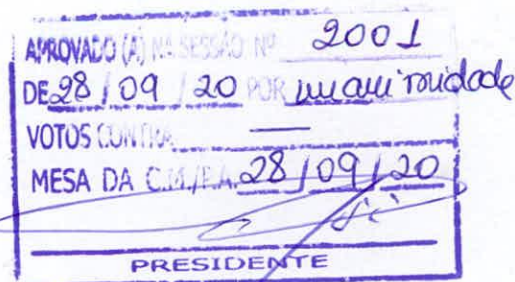 APROVADO (A) NA SESSÃO Nº 2001
DE 28 / 09 / 20 POR unanimidade
VOTOS CONTRA —
MESA DA C.M./P.A. 28 / 09 / 20
PRESIDENTE